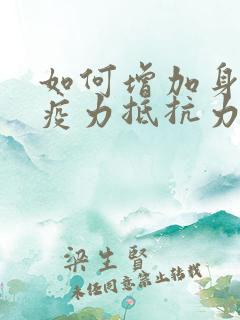 如何增加身
疫力抵抗力
梁生賢
未经同意禁止转载